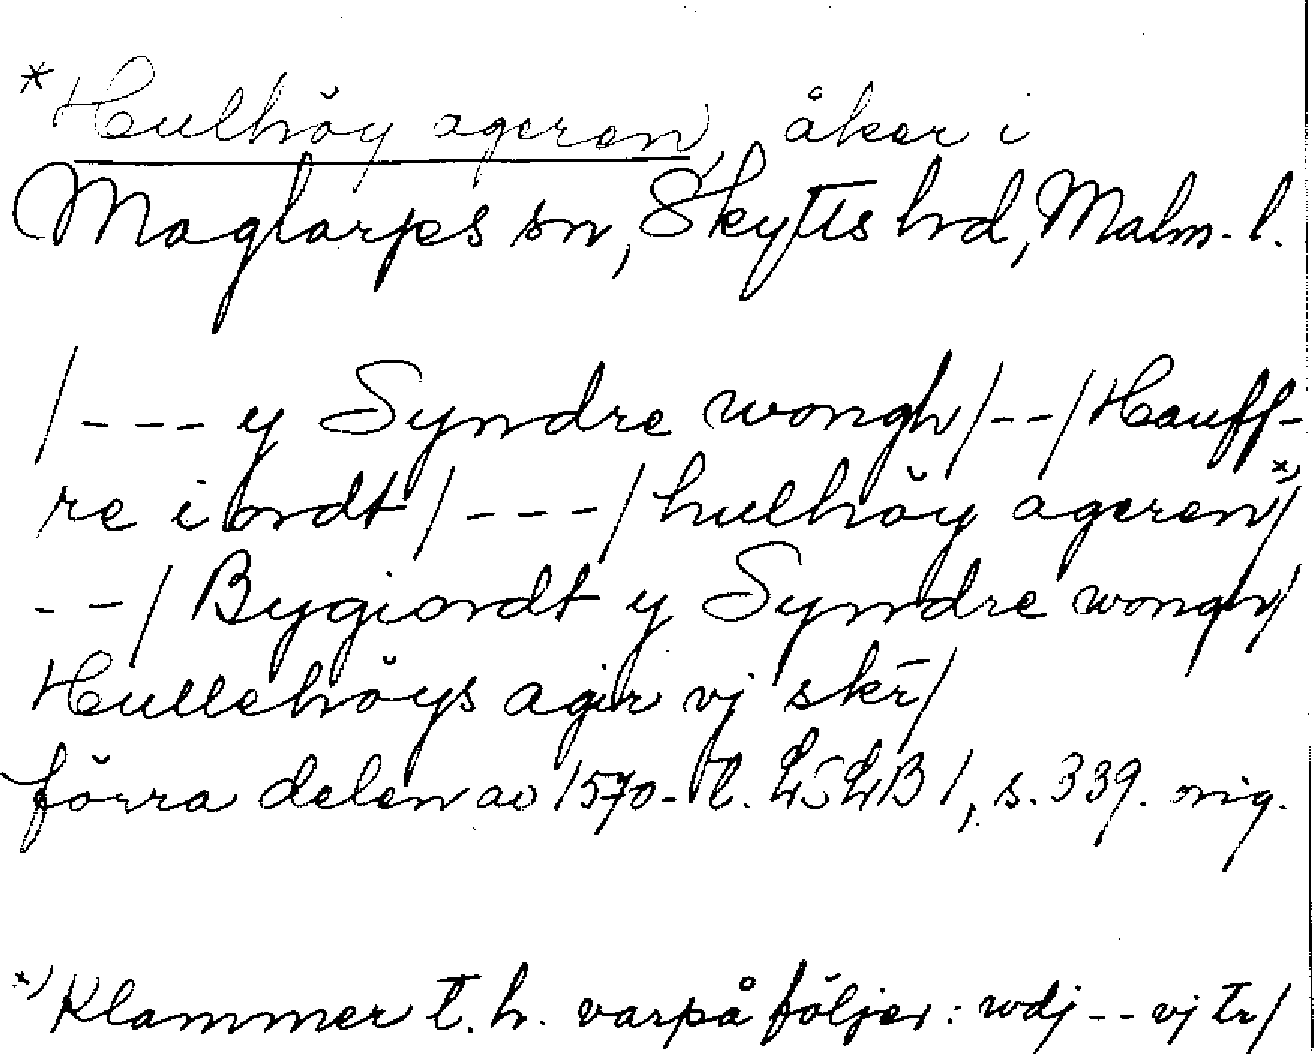 *Hulhöy ageren, åker i
Maglarps sn, Skytts hd, Malm. l.
/--- y Syndre wongh/--/Hauff-
re iordt/---/hulhöy ageren*)/
--/Bygiordt y Syndre wongh/
Hullehöys agir vj skr̄/
förra delen av 1570-t. LSLB 1, s. 339. orig.
*) Klammer t. h. varpå följer: wdj -- vj tr/